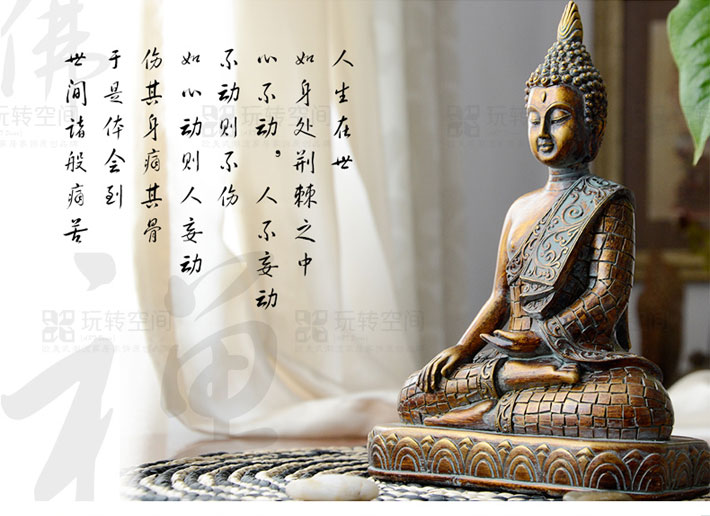 人生在世
如身处荆棘之中
心不动，人不妄动
不动则不伤
如心动则人妄动
伤其身痛其骨
于是体会到
世间诸般痛苦
佛
禅
玩转空间
玩转空间
玩转空间
玩转空间
玩转空间